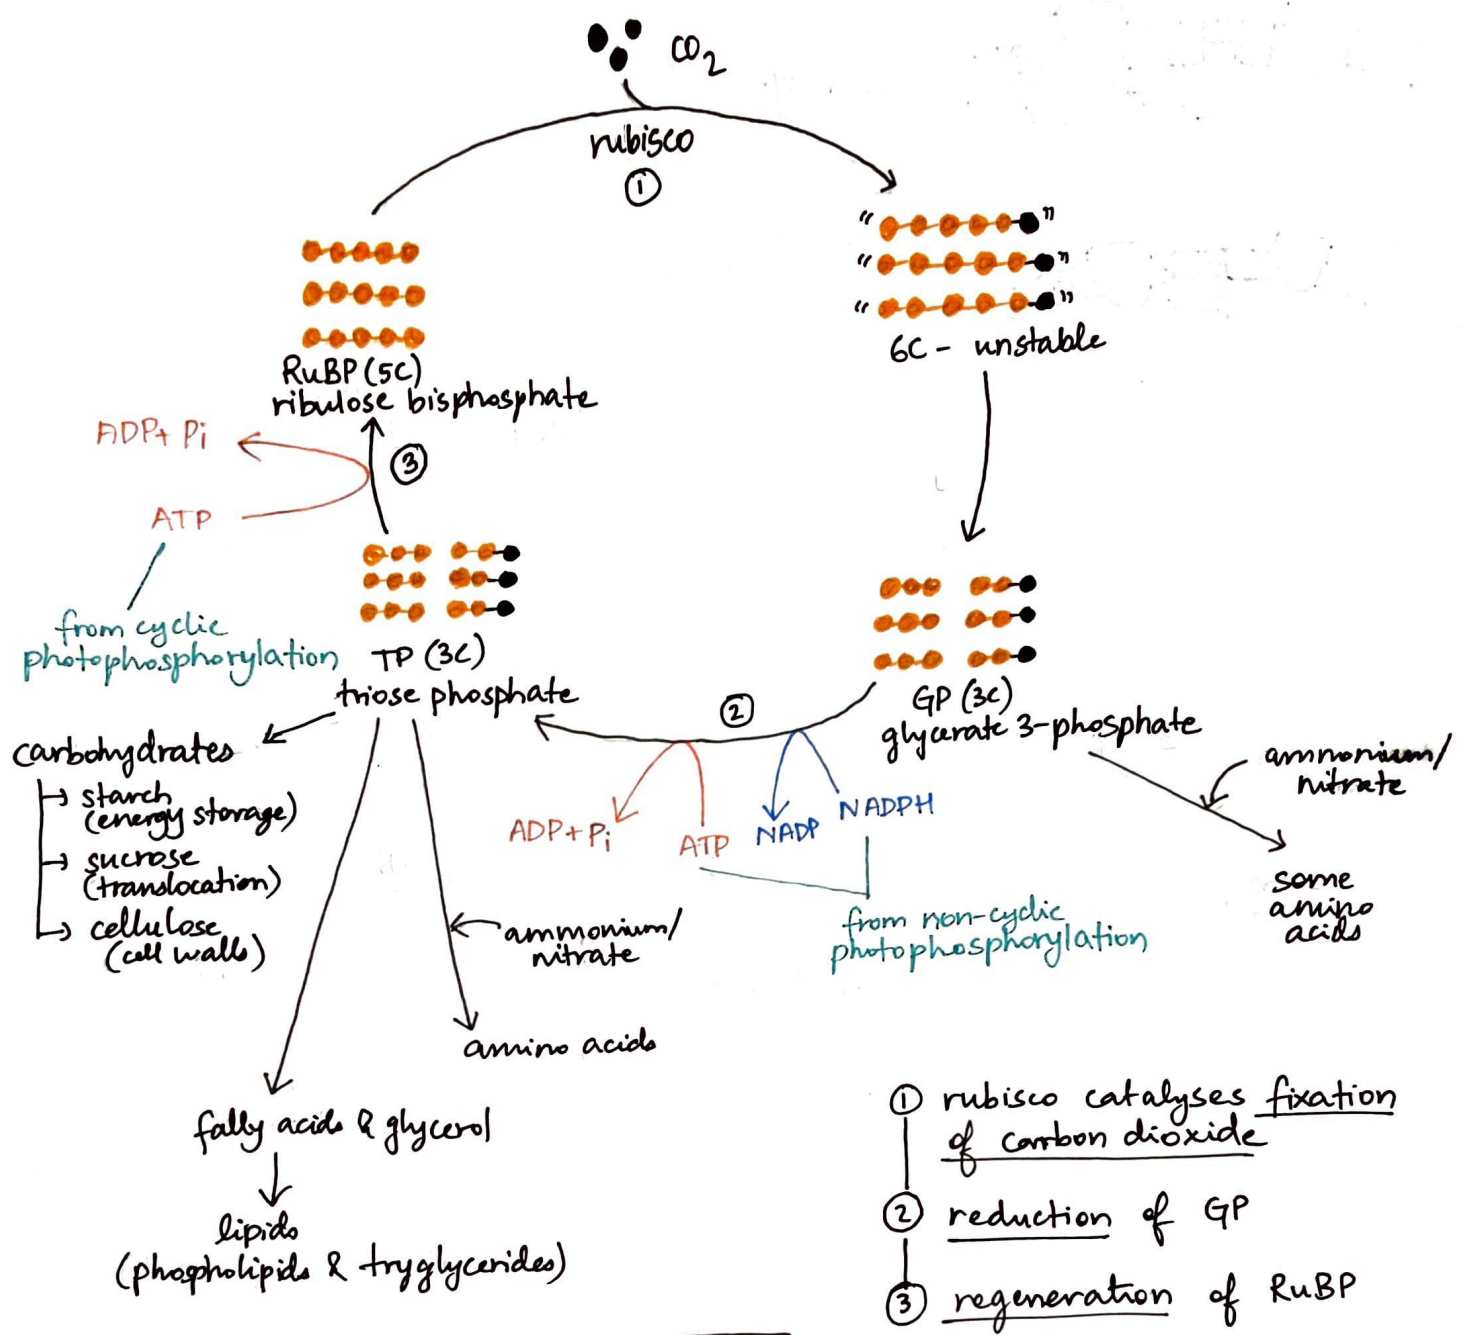 CO2
rubisco
①
" "
" "
" "
6C - unstable
RuBP (5C)
ribulose bisphosphate
ADP + Pi
③
ATP
from cyclic
photophosphorylation
TP (3C)
triose phosphate
②
GP (3C)
glycerate 3-phosphate
ammonium/
nitrate
some
amino
acids
ADP + Pi
ATP
NADP
NADPH
from non-cyclic
photophosphorylation
carbohydrates
starch
(energy storage)
sucrose
(translocation)
cellulose
(cell walls)
ammonium/
nitrate
amino acids
fatty acids & glycerol
lipids
(phospholipids & tryglycerides)
① rubisco catalyses fixation
of carbon dioxide
② reduction of GP
③ regeneration of RuBP